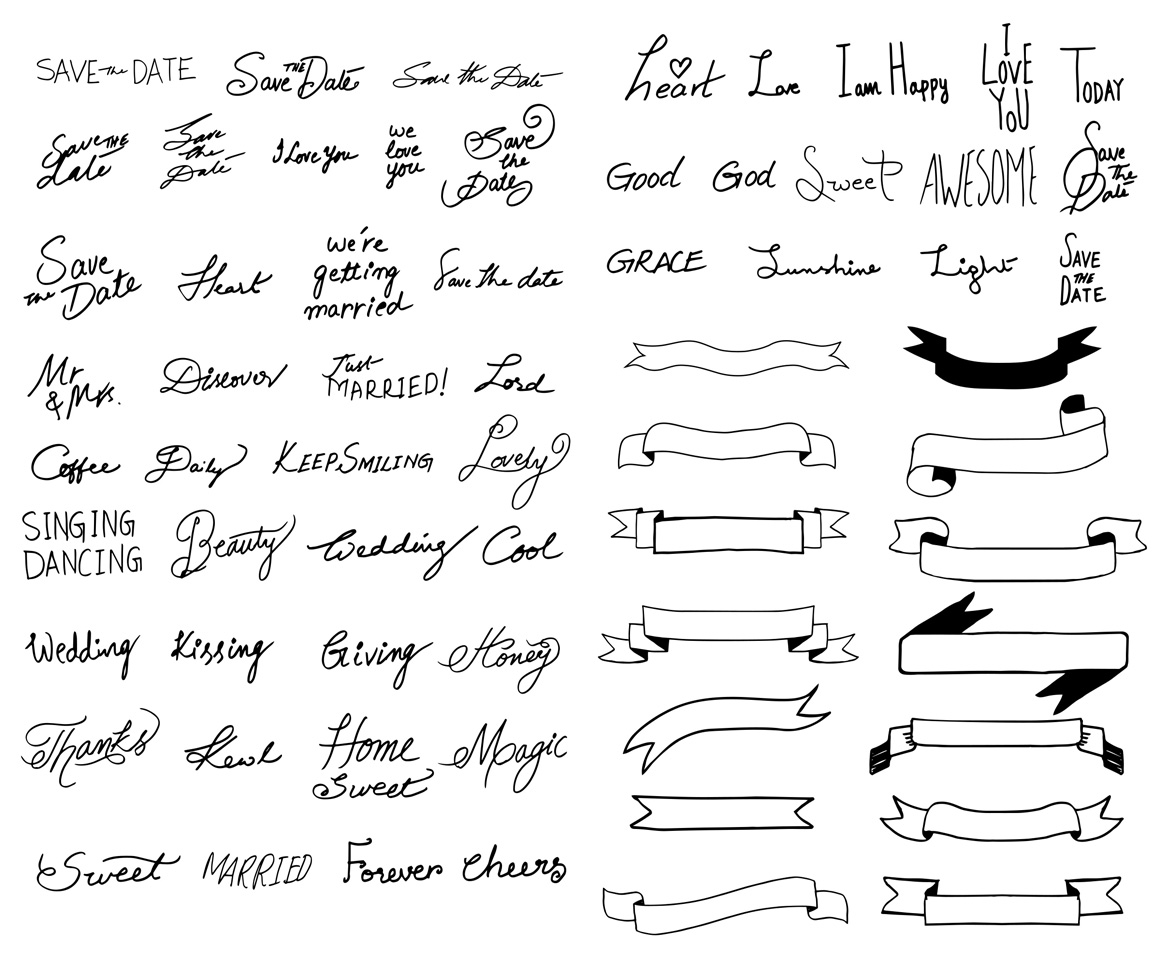 SAVE the DATE
Save THE Date
Save the Date
Save THE date
Save the Date
I Love You
we love you
Save the Date
Save the Date
Heart
we're getting married
Save the date
Mr & Mrs.
Discover
Just MARRIED!
Lord
Coffee
Daily
KEEP SMILING
Lovely
SINGING DANCING
Beauty
Wedding
Cool
Wedding
Kissing
Giving
Honey
Thanks
Kewl
Home Sweet
Magic
Sweet
MARRIED
Forever
Cheers
heart
Love
I am Happy
I LOVE YoU
TODAY
Good
God
Sweet
AWESOME
Save The Date
GRACE
Sunshine
Light
SAVE THE DATE